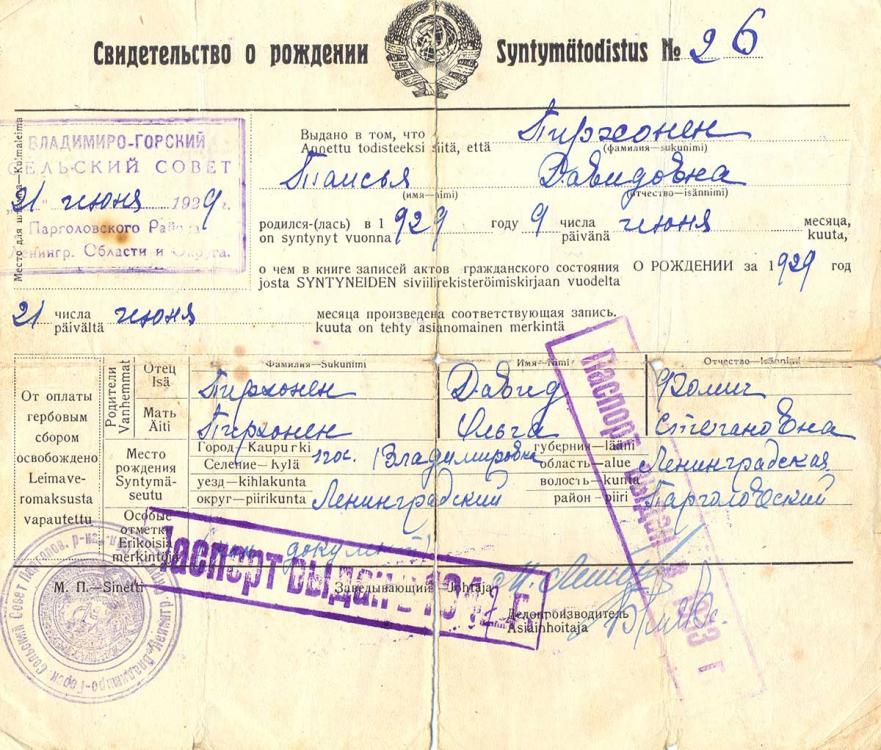 Свидетельство о рождении Syntymätodistus № 26
Место для штампа—Kulmaleima
ВЛАДИМИРО-ГОРСКИЙ
СЕЛЬСКИЙ СОВЕТ
"21" июня 1939 г.
Парголовского Района
Ленингр. Области и Округа.
Выдано в том, что Пирхонен
Annettu todisteeksi siitä, että (фамилия—sukunimi)
Таисья Давидовна
(имя—nimi) (отчество—isännimi)
родился-(лась) в 1929 году 9 числа июня месяца,
on syntynyt vuonna päivänä kuuta,
о чем в книге записей актов гражданского состояния О РОЖДЕНИИ за 1929 год
josta SYNTYNEIDEN siviilirekisteröimiskirjaan vuodelta
21 числа июня месяца произведена соответствующая запись.
päivältä kuuta on tehty asianomainen merkintä
От оплаты гербовым сбором освобождено
Leimaveromaksusta vapautettu
Родители
Vanhemmat
Фамилия—Sukunimi Имя—Nimi Отчество—Isännimi
Отец Пирхонен Давид Фомич
Isä
Мать Пирхонен Ольга Степановна
Äiti
Место рождения
Syntymäseutu
Город—Kaupunki губерния—lääni
Селение—kylä пос. Владимировка область—alue Ленинградская
уезд—kihlakunta волость—kunta
округ—piirikunta Ленинградский район—piiri Парголовский
Особые отметки
Erikoisia merkintöjä
Паспорт выдан
Паспорт выдан в 19 г.
М. П.—Sinetti Заведывающий—Johtaja
Делопроизводитель
Asiainhoitaja